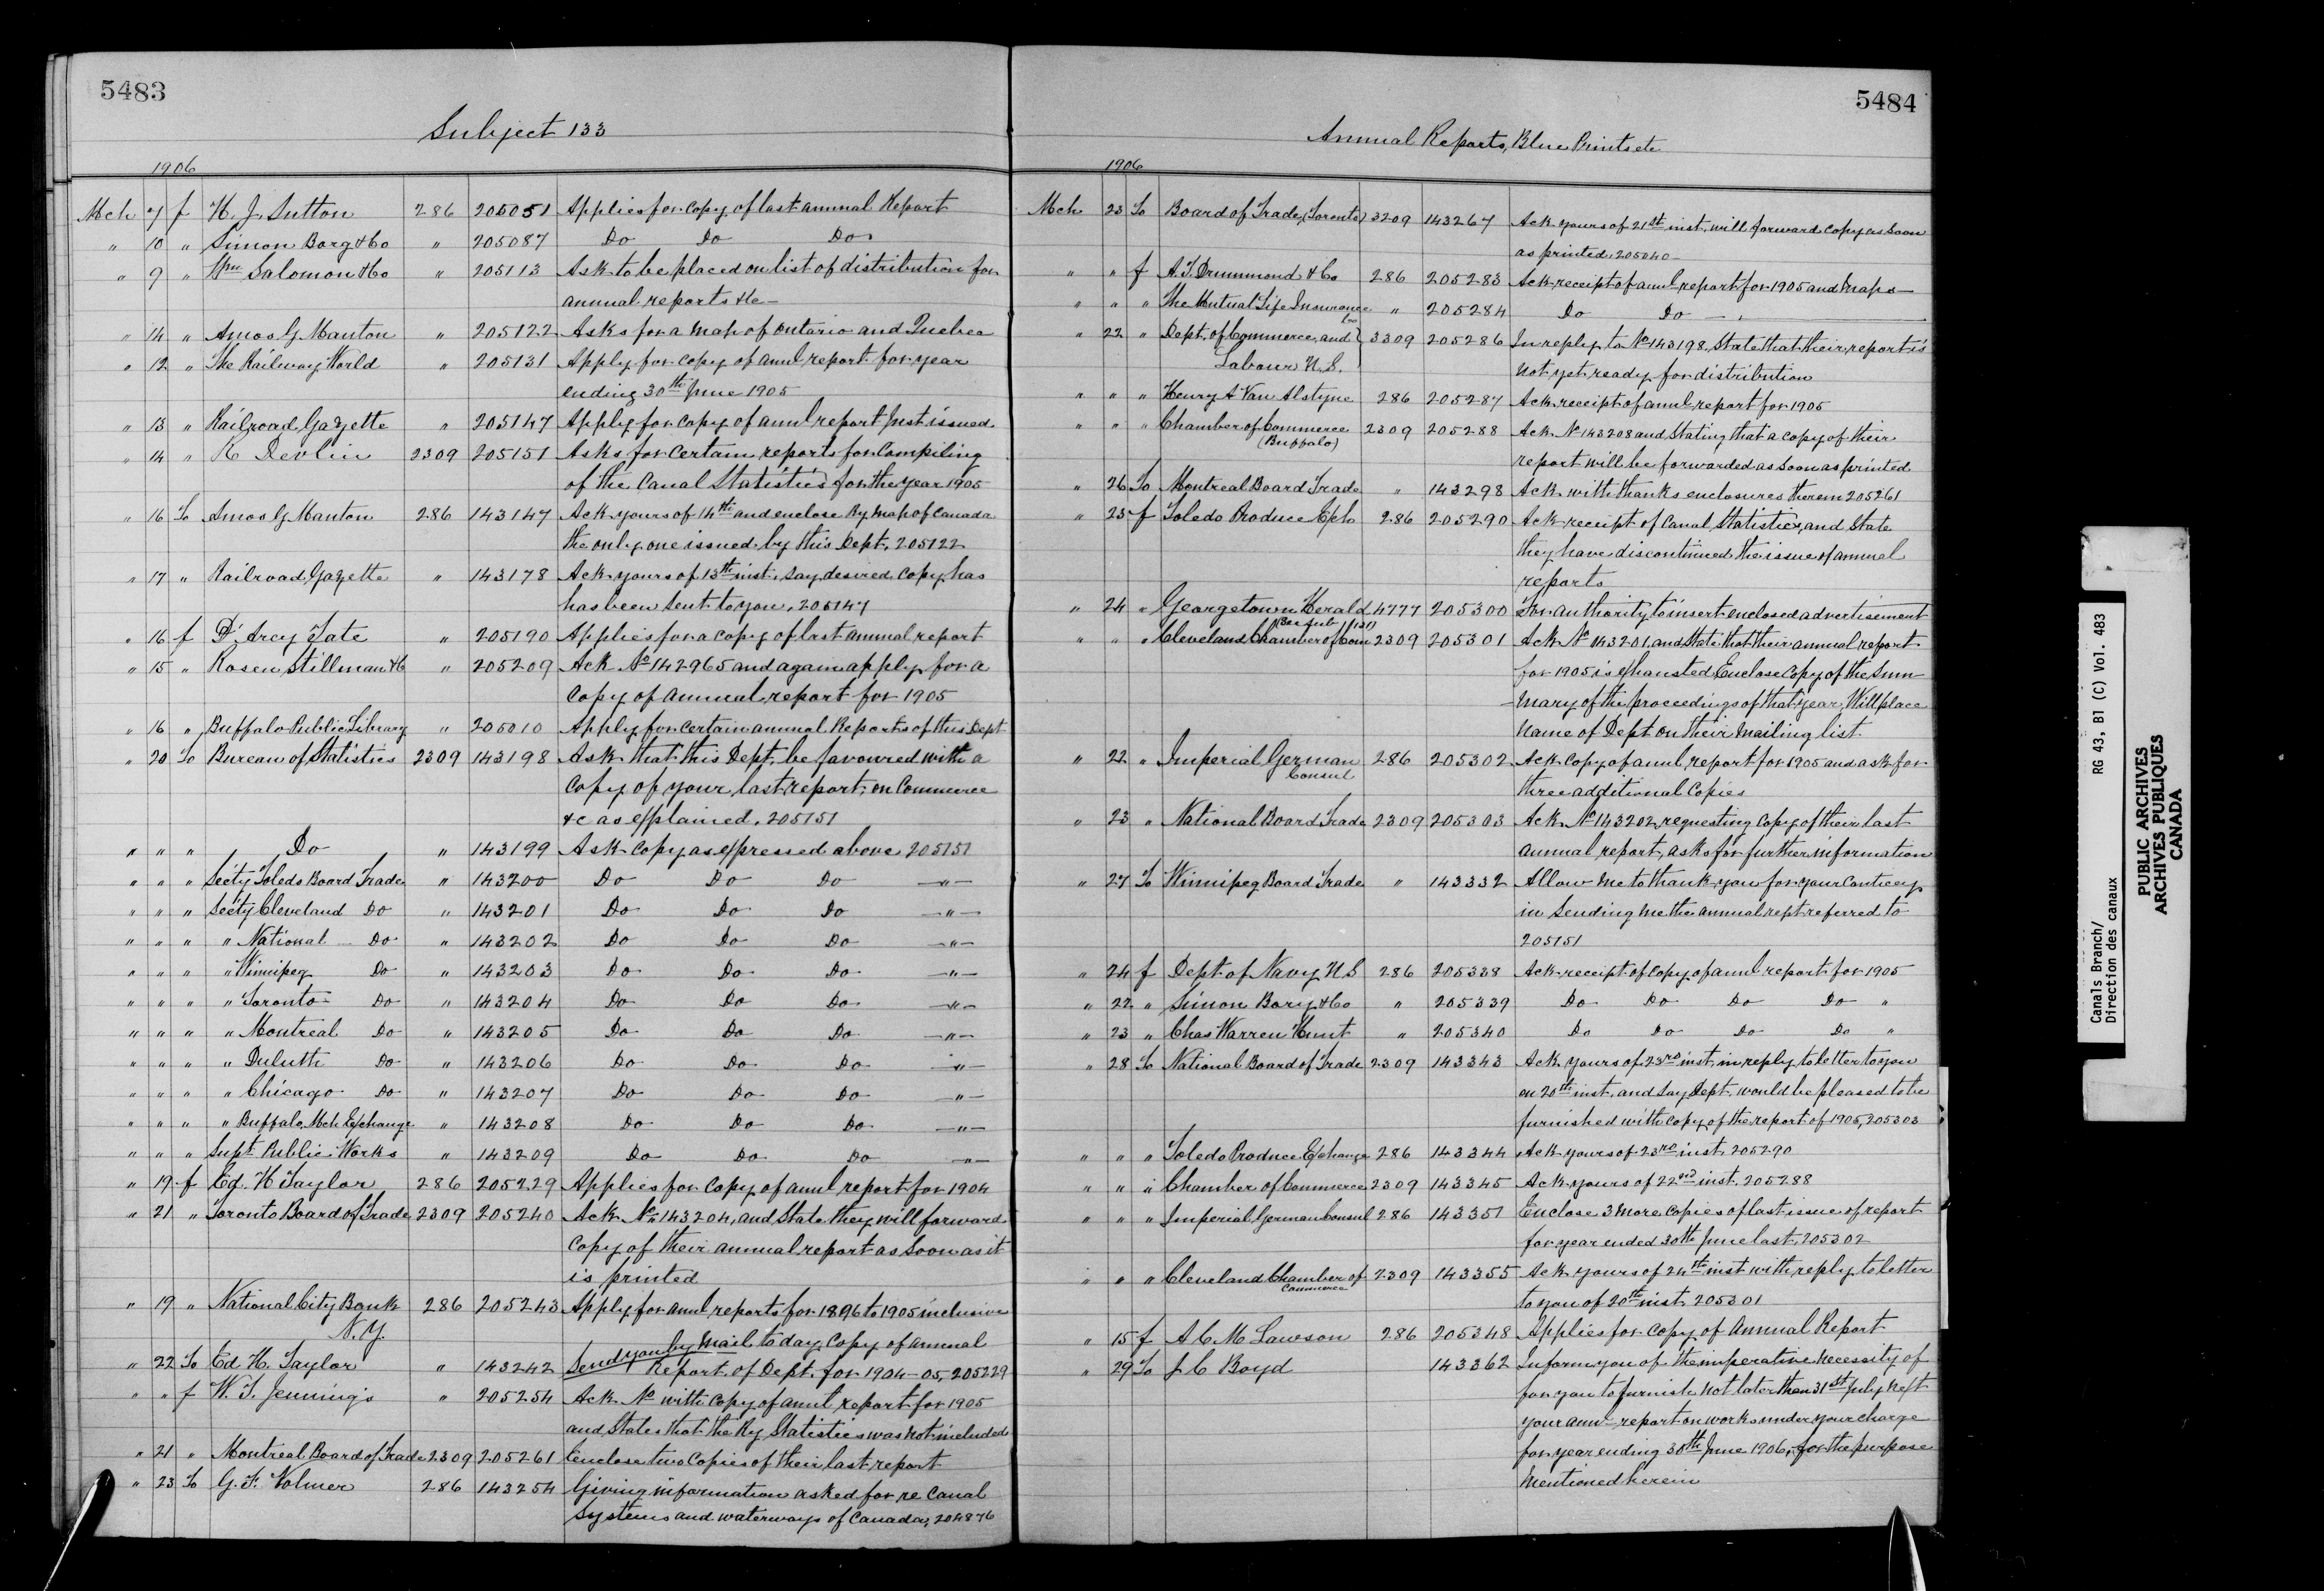 5483
Subject 133
1906
Mch 7 f H. J. Sutton 286 205051 Applies for copy of last annual Report
" 10 " Simon Borg & Co " 205087 Do Do Do
" 9 " Wm Salomon & Co " 205113 Ask to be placed on list of distribution for
annual reports &c —
" 14 " Amos G Manton " 205122 Asks for a map of Ontario and Quebec
" 12 " The Railway World " 205131 Apply for copy of annl report for year
ending 30th June 1905
" 13 " Railroad Gazette " 205147 Apply for copy of annl report just issued
" 14 " R Devlin 2309 205151 Asks for certain reports for compiling
of the Canal Statistics for the year 1905
" 16 To Amos G Manton 286 143147 Ack yours of 14th and enclose Ry map of Canada
the only one issued by this Dept. 205122
" 17 " Railroad Gazette " 143178 Ack yours of 13th inst, say desired copy has
has been sent to you, 205147
" 16 f D'Arcy Tate " 205190 Applies for a copy of last annual report
" 15 " Rosen Stillman & Co " 205209 Ack No 142965 and again apply for a
copy of annual report for 1905
" 16 " Buffalo Public Library " 205010 Apply for certain annual Reports of this Dept
" 20 To Bureau of Statistics 2309 143198 Ask that this Dept, be favoured with a
copy of your last report, on Commerce
&c as explained, 205151
" " " Do " 143199 Ask copy as expressed above 205151
" " " Secty Toledo Board Trade " 143200 Do Do Do — " —
" " " Secty Cleveland Do " 143201 Do Do Do — " —
" " " " National Do " 143202 Do Do Do — " —
" " " " Winnipeg Do " 143203 Do Do Do — " —
" " " " Toronto Do " 143204 Do Do Do — " —
" " " " Montreal Do " 143205 Do Do Do — " —
" " " " Duluth Do " 143206 Do Do Do — " —
" " " " Chicago Do " 143207 Do Do Do — " —
" " " " Buffalo, Mch Exchange " 143208 Do Do Do — " —
" " " Supt Public Works " 143209 Do Do Do — " —
" 19 f Ed. H Taylor 286 205229 Applies for copy of annl report for 1904
" 21 " Toronto Board of Trade 2309 205240 Ack No 143204, and State they will forward
copy of their annual report as soon as it
is printed
" 19 " National City Bank 286 205243 Apply for annl reports for 1896 to 1905 inclusive
N.Y.
Send you by Mail today, copy of annual
" 22 To Ed H. Taylor " 143242 Report of Dept. for 1904-05, 205229
" " f W. T. Jennings " 205254 Ack No with copy of annl report for 1905
and States that the Ry Statistics was not included
" 21 " Montreal Board of Trade 2309 205261 Enclose two copies of their last report
" 23 To G. F. Volmer 286 143254 Giving information asked for re Canal
Systems and waterways of Canada, 204876
5484
Annual Reports, Blue Prints etc
1906
Mch 23 To Board of Trade, (Toronto) 3209 143267 Ack yours of 21st inst. will forward copy as soon
as printed, 205040 —
" " f A. T. Drummond & Co 286 205283 Ack receipt of annl report for 1905 and maps —
" " " The Mutual Life Insurance Co " 205284 Do Do — " —
" 22 " Dept. of Commerce, and 3309 205286 In reply to No 143198. State that their report is
Labour U.S. not yet ready for distribution
" " " Henry A Van Alstyne 286 205287 Ack receipt of annl report for 1905
" " " Chamber of Commerce 2309 205288 Ack No 143208 and Stating that a copy of their
(Buffalo)
report will be forwarded as soon as printed
" 26 To Montreal Board Trade " 143298 Ack with thanks enclosures therein 205261
" 23 f Toledo Produce Exh 286 205290 Ack receipt of Canal Statistics, and State
they have discontinued the issue of annual
reports
" 24 " Georgetown Herald 4777 205300 For authority to insert enclosed advertisement
(See Sub 131)
" " " Cleveland Chamber of Com 2309 205301 Ack No 143201, and State that their annual report
for 1905 is exhausted, Enclose copy of the Sum
-mary of the proceedings of that year, Will place
name of Dept on their mailing list
" 22 " Imperial German 286 205302 Ack copy of annl report for 1905 and ask for
Consul
three additional copies
" 23 " National Board Trade 2309 205303 Ack No 143202, requesting copy of their last
annual report, asks for further information
" 27 To Winnipeg Board Trade " 143332 Allow me to thank you for your Courtesy
in sending me the annual rept referred to
205151
" 24 f Dept of Navy U S 286 205338 Ack receipt of copy of annl report for 1905
" 22 " Simon Borg & Co " 205339 Do Do Do Do "
" 23 " Chas Warren Hunt " 205340 Do Do Do Do "
" 28 To National Board of Trade 2309 143343 Ack yours of 23rd inst, in reply to letter to you
on 20th inst, and say Dept. would be pleased to be
furnished with copy of the report of 1905, 205303
" " " Toledo Produce Exchange 286 143344 Ack yours of 23rd inst, 205290
" " " Chamber of Commerce 2309 143345 Ack yours of 22nd inst. 205288
" " " Imperial German Consul 286 143351 Enclose 3 more copies of last issue of report
for year ended 30th June last, 205302
" " " Cleveland Chamber of 2309 143355 Ack yours of 24th inst with reply to letter
Commerce
to you of 20th inst, 205301
" 15 f A C M Lawson 286 205348 Applies for copy of Annual Report
" 29 To J. C Boyd 143362 Inform you of the imperative necessity of
for you to furnish not later than 31st July next
your annl report on works under your charge
for year ending 30th June 1906, for the purpose
mentioned herein
Canals Branch/
Direction des canaux
RG 43, B1 (C) Vol. 483
PUBLIC ARCHIVES
ARCHIVES PUBLIQUES
CANADA